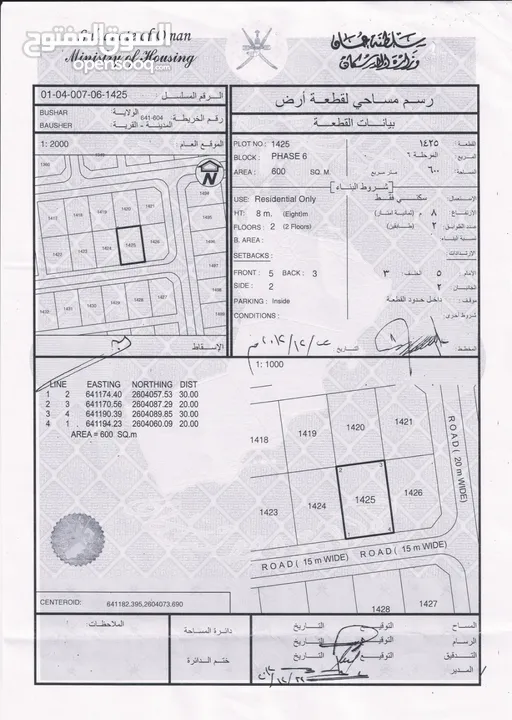 Sultanate of Oman
Ministry of Housing
سلطنة عمان
وزارة الإسكان
السوق المفتوح
opensooq.com
01-04-007-06-1425 الرقم المسلسل :
رسم مساحي لقطعة أرض
BUSHAR الولاية :
641-604 رقم الخريطة :
BAUSHER المدينة - القرية :
بيانات القطعة
1: 2000 الموقع العام :
PLOT NO.: 1425 ١٤٢٥ القطعة :
BLOCK : PHASE 6 المرحلة ٦ المربع :
AREA : 600 SQ. M. متر مربع ٦٠٠ المساحة :
شروط البناء
USE: Residential Only سكني فقط الاستعمال :
HT: 8 m. (Eight)m ٨ م (ثمانية امتار) الارتفاع :
FLOORS : 2 (2 Floors) ٢ (طابقين) عدد الطوابق :
B. AREA : نسبة البناء :
SETBACKS : الارتدادات :
FRONT : 5 BACK : 3 ٣ الخلف : ٥ الأمام :
SIDE : 2 ٢ الجانبين :
PARKING : Inside داخل حدود القطعة موقف :
CONDITIONS : شروط أخرى :
التاريخ
المخطط :
N
1390
1494
1417
1418
1419
1420
1495
1422
1423
1424
1425
1426
1496
1427
الإسقاط
1: 1000
LINE EASTING NORTHING DIST
1 2 641174.40 2604057.53 30.00
2 3 641170.56 2604087.29 20.00
3 4 641190.39 2604089.85 30.00
4 1 641194.23 2604060.09 20.00
AREA = 600 SQ.m
1418
1419
1420
1421
1423
1424
1425
1426
2
3
4
ROAD ( 20 m WIDE)
ROAD ( 15 m WIDE) ROAD ( 15 m WIDE)
1428
1427
CENTEROID: 641182.395,2604073.690
الملاحظات :
دائرة المساحة
ختم الدائرة
المساح التوقيع التاريخ
الرسام التوقيع التاريخ
التدقيق التوقيع التاريخ
المدير